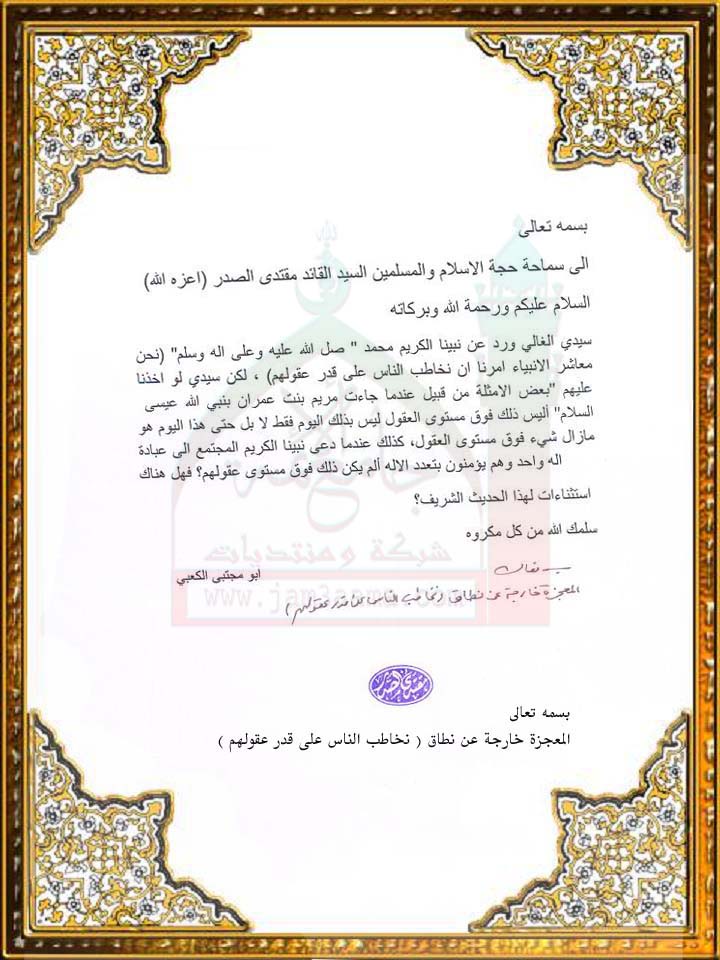 بسمه تعالى
الى سماحة حجة الاسلام والمسلمين السيد القائد مقتدى الصدر (اعزه الله)
السلام عليكم ورحمة الله وبركاته
سيدي الغالي ورد عن نبينا الكريم محمد " صل الله عليه وعلى اله وسلم" (نحن
معاشر الانبياء امرنا ان نخاطب الناس على قدر عقولهم) ، لكن سيدي لو اخذنا
بعض الامثلة من قبيل عندما جاءت مريم بنت عمران بنبي الله عيسى" عليهم
السلام" أليس ذلك فوق مستوى العقول ليس بذلك اليوم فقط لا بل حتى هذا اليوم هو
مازال شيء فوق مستوى العقول، كذلك عندما دعى نبينا الكريم المجتمع الى عبادة
اله واحد وهم يؤمنون بتعدد الاله ألم يكن ذلك فوق مستوى عقولهم؟ فهل هناك
استثناءات لهذا الحديث الشريف؟
سلمك الله من كل مكروه
ابو مجتبى الكعبي
بسمه تعالى
المعجزة خارجة عن نطاق (نخاطب الناس على قدر عقولهم)
شبكة ومنتديات
www.jam3aama.com
بسمه تعالى
المعجزة خارجة عن نطاق ( نخاطب الناس على قدر عقولهم )